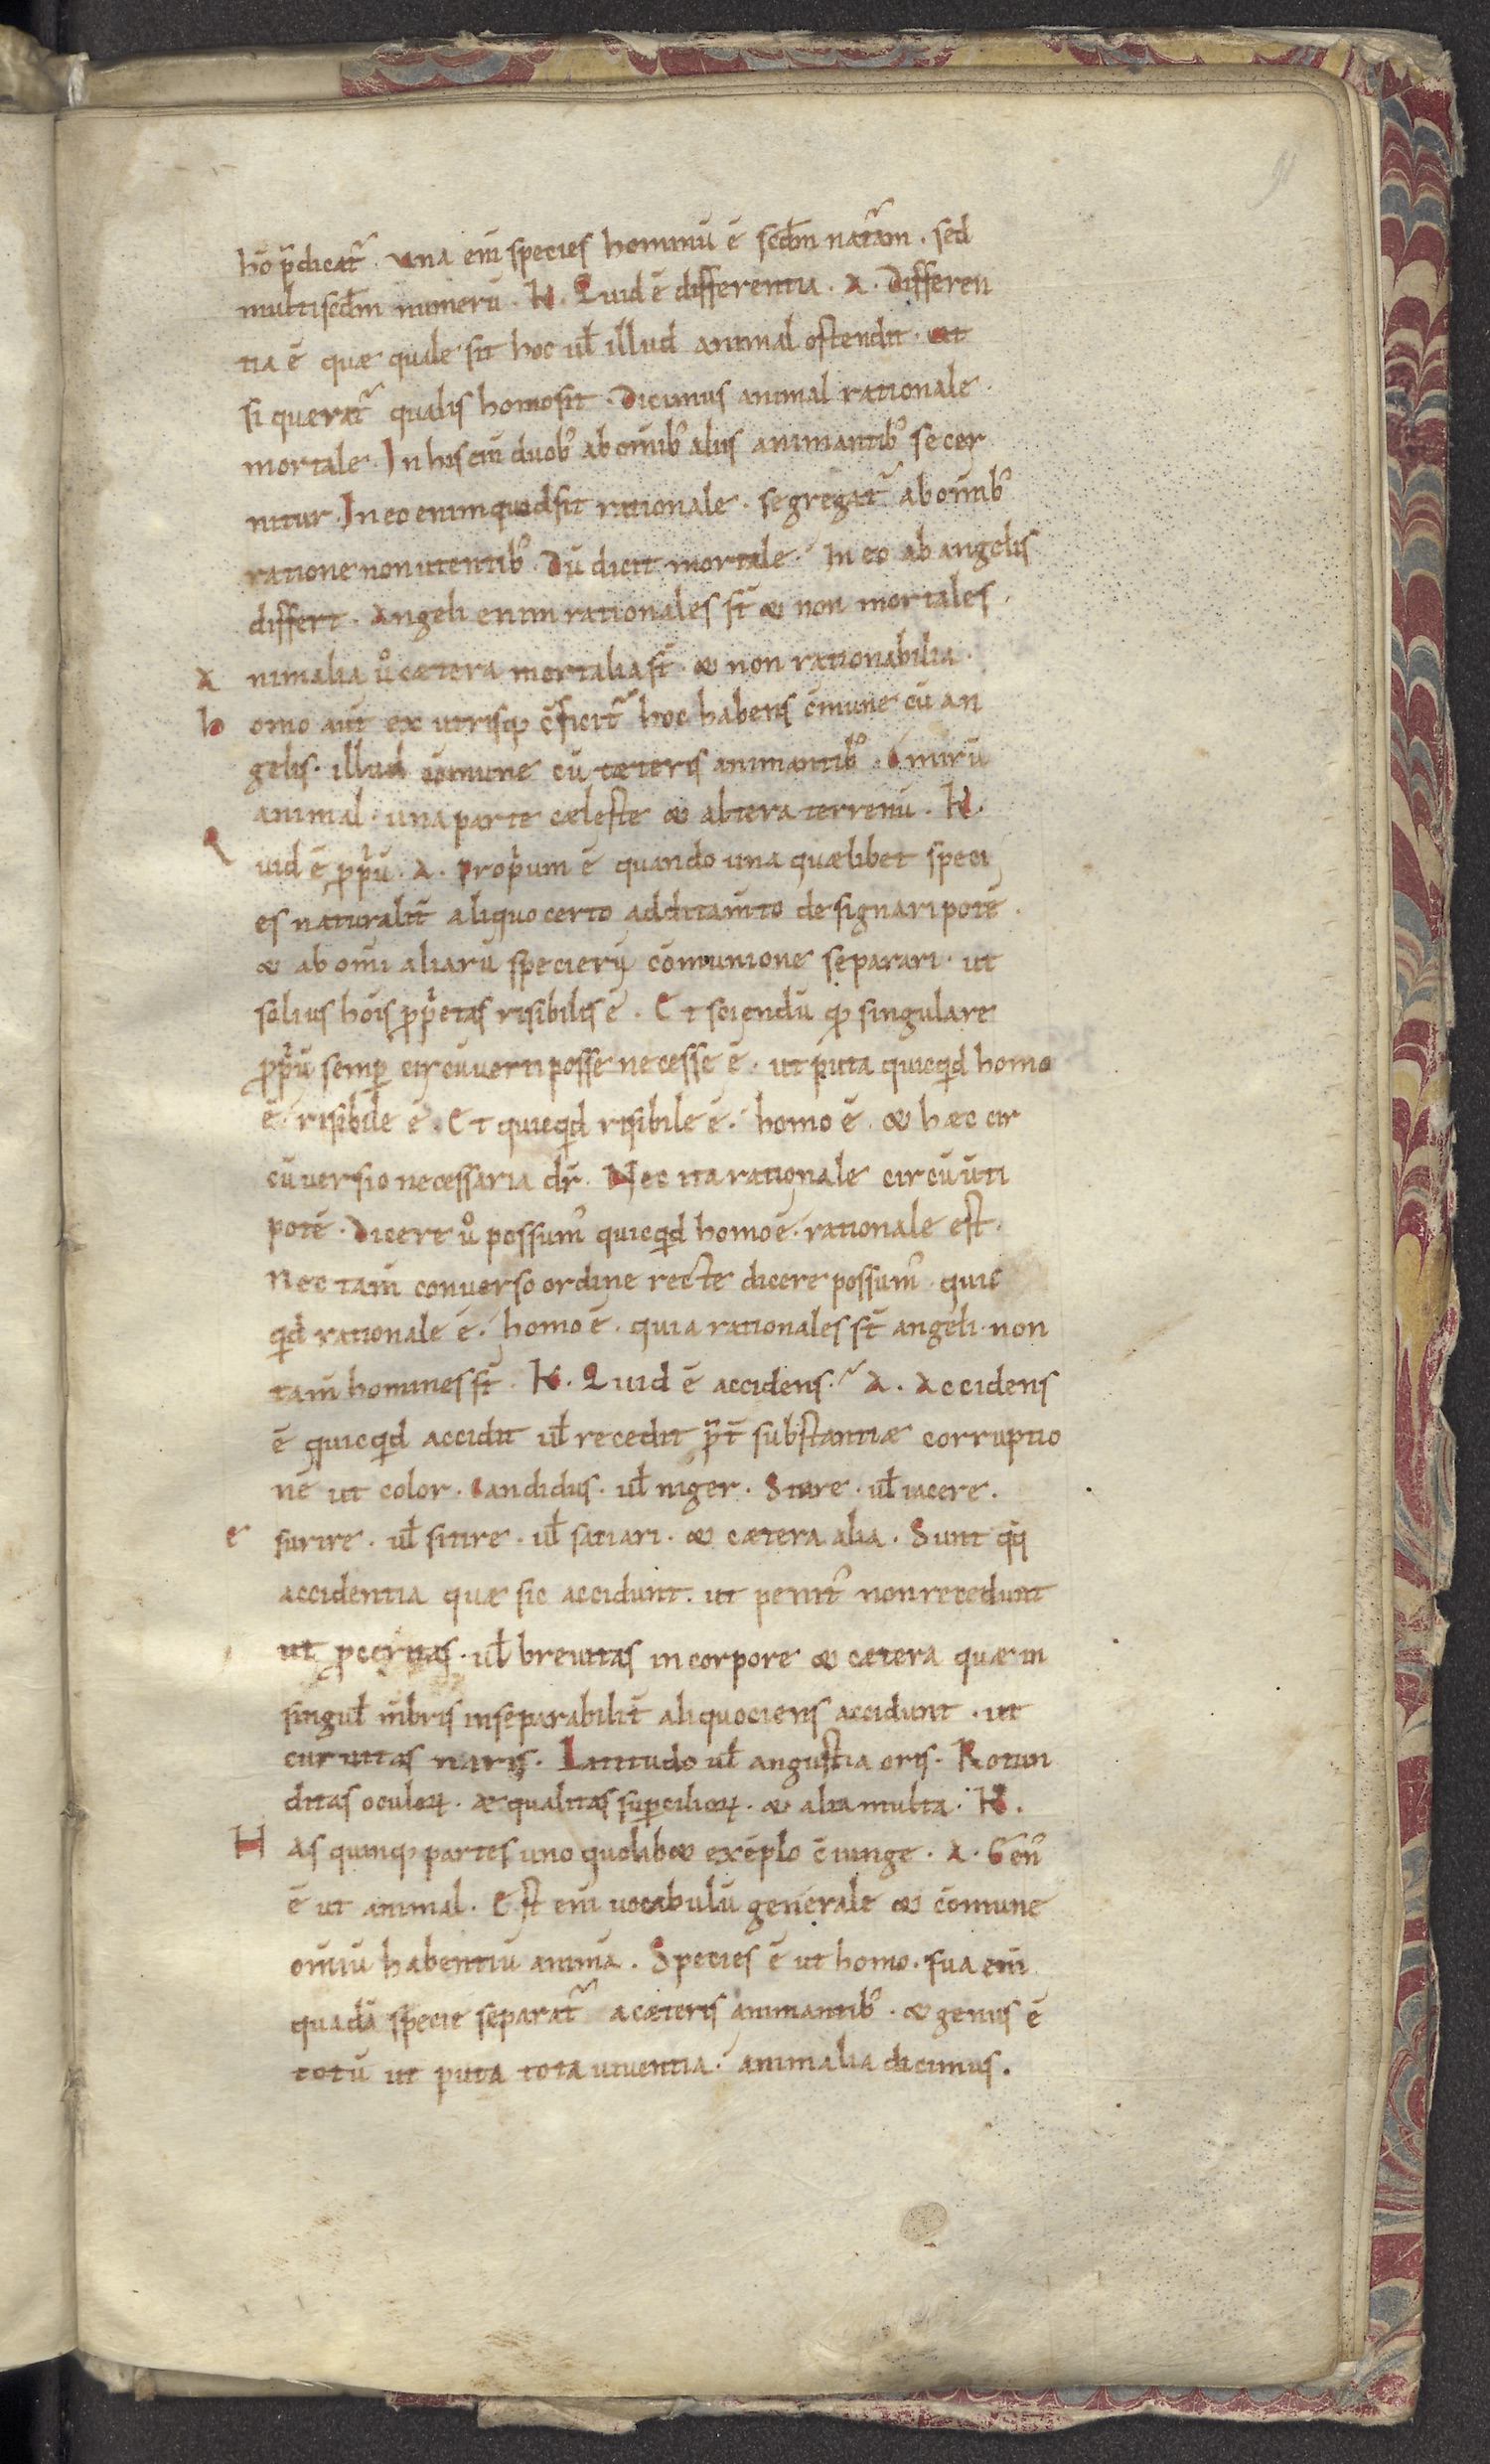 hō p̄dicat᷑. Una em̄ species hominū ē scdm̄ nat̄am. sed
multi scdm̄ numerū. K. Quid ē differentia. A. Differen
tia ē quae quale sit hoc ul̄ illud animal ostendit. ut
si querat᷑ qualis homo sit. Dicimus animal rationale
mortale. In his cū duob; ab omīb; aliis animantib; secer
nitur. In eo enim quod sit rationale. segregat᷑ ab omīb;
ratione non utentib;. Dū dicit mortale. In eo ab angelis
differt. Angeli enim rationales st̄ & non mortales.
Animalia ů caetera mortalia st̄. & non rationabilia.
homo aut̄ ex utrisq; c̄ficit᷑ hoc habens c̄mune cū an
gelis. illud cōmune cū caeteris animantib;. O mirū
animal. una parte caeleste & altera terrenū. K.
Quid ē pp̄iū. A. Propium ē quando una quaelibet speci
es naturalit̄ aliquo certo additam̄to designari potē.
& ab om̄i aliarū specierꝝ cōmunione separari. ut
solius hoīs pp̄ietas risibilis ē. Et sciendū qđ singulare
pp̄iū semp̄ circūuerti posse necesse ē. ut puta quicqd̄ homo
ē. risibile ē. Et quicqd̄ risibile ē. homo ē. & haec cir
cūuersio necessaria dr̄. Nec ita rationale circūūti
potē. Dicere ů possum᷒ quicqd̄ homo ē. rationale est.
Nec tam̄ conuerso ordine recte dicere possum᷒. quic
qd̄ rationale ē. homo ē. quia rationales st̄ angeli. non
tam̄ homines st̄. K. Quid ē accidens. A. Accidens
ē quicqd̄ accidit ul̄ recedit p̄t̄ substantiae corruptio
nē ut color. Candidus. ul̄ niger. Stare. ul̄ iacere.
esurire. ul̄ sitire. ul̄ satiari. & caetera alia. Sunt qq̄
accidentia quae sic accidunt. ut penit᷒ non recedunt
ut p̄ceritas. ul̄ breuitas in corpore & caetera quae in
singul̄ m̄bris inseparabilit̄ aliquociens accidunt. ut
curuitas naris. Latitudo ul̄ angustia oris. Rotun
ditas oculoꝝ. aequalitas sup̄cilioꝝ. & alia multa. K.
Has quinq; partes uno quolib& exēplo c̄iunge. A. Gen᷒
ē ut animal. Est em̄ uocabulū generale & cōmune
om̄iū habentiū animā. Species ē ut homo. sua em̄
quadā specie separat᷑ a caeteris animantib;. & genus ē
totū ut puta tota uiuentia. animalia dicimus.